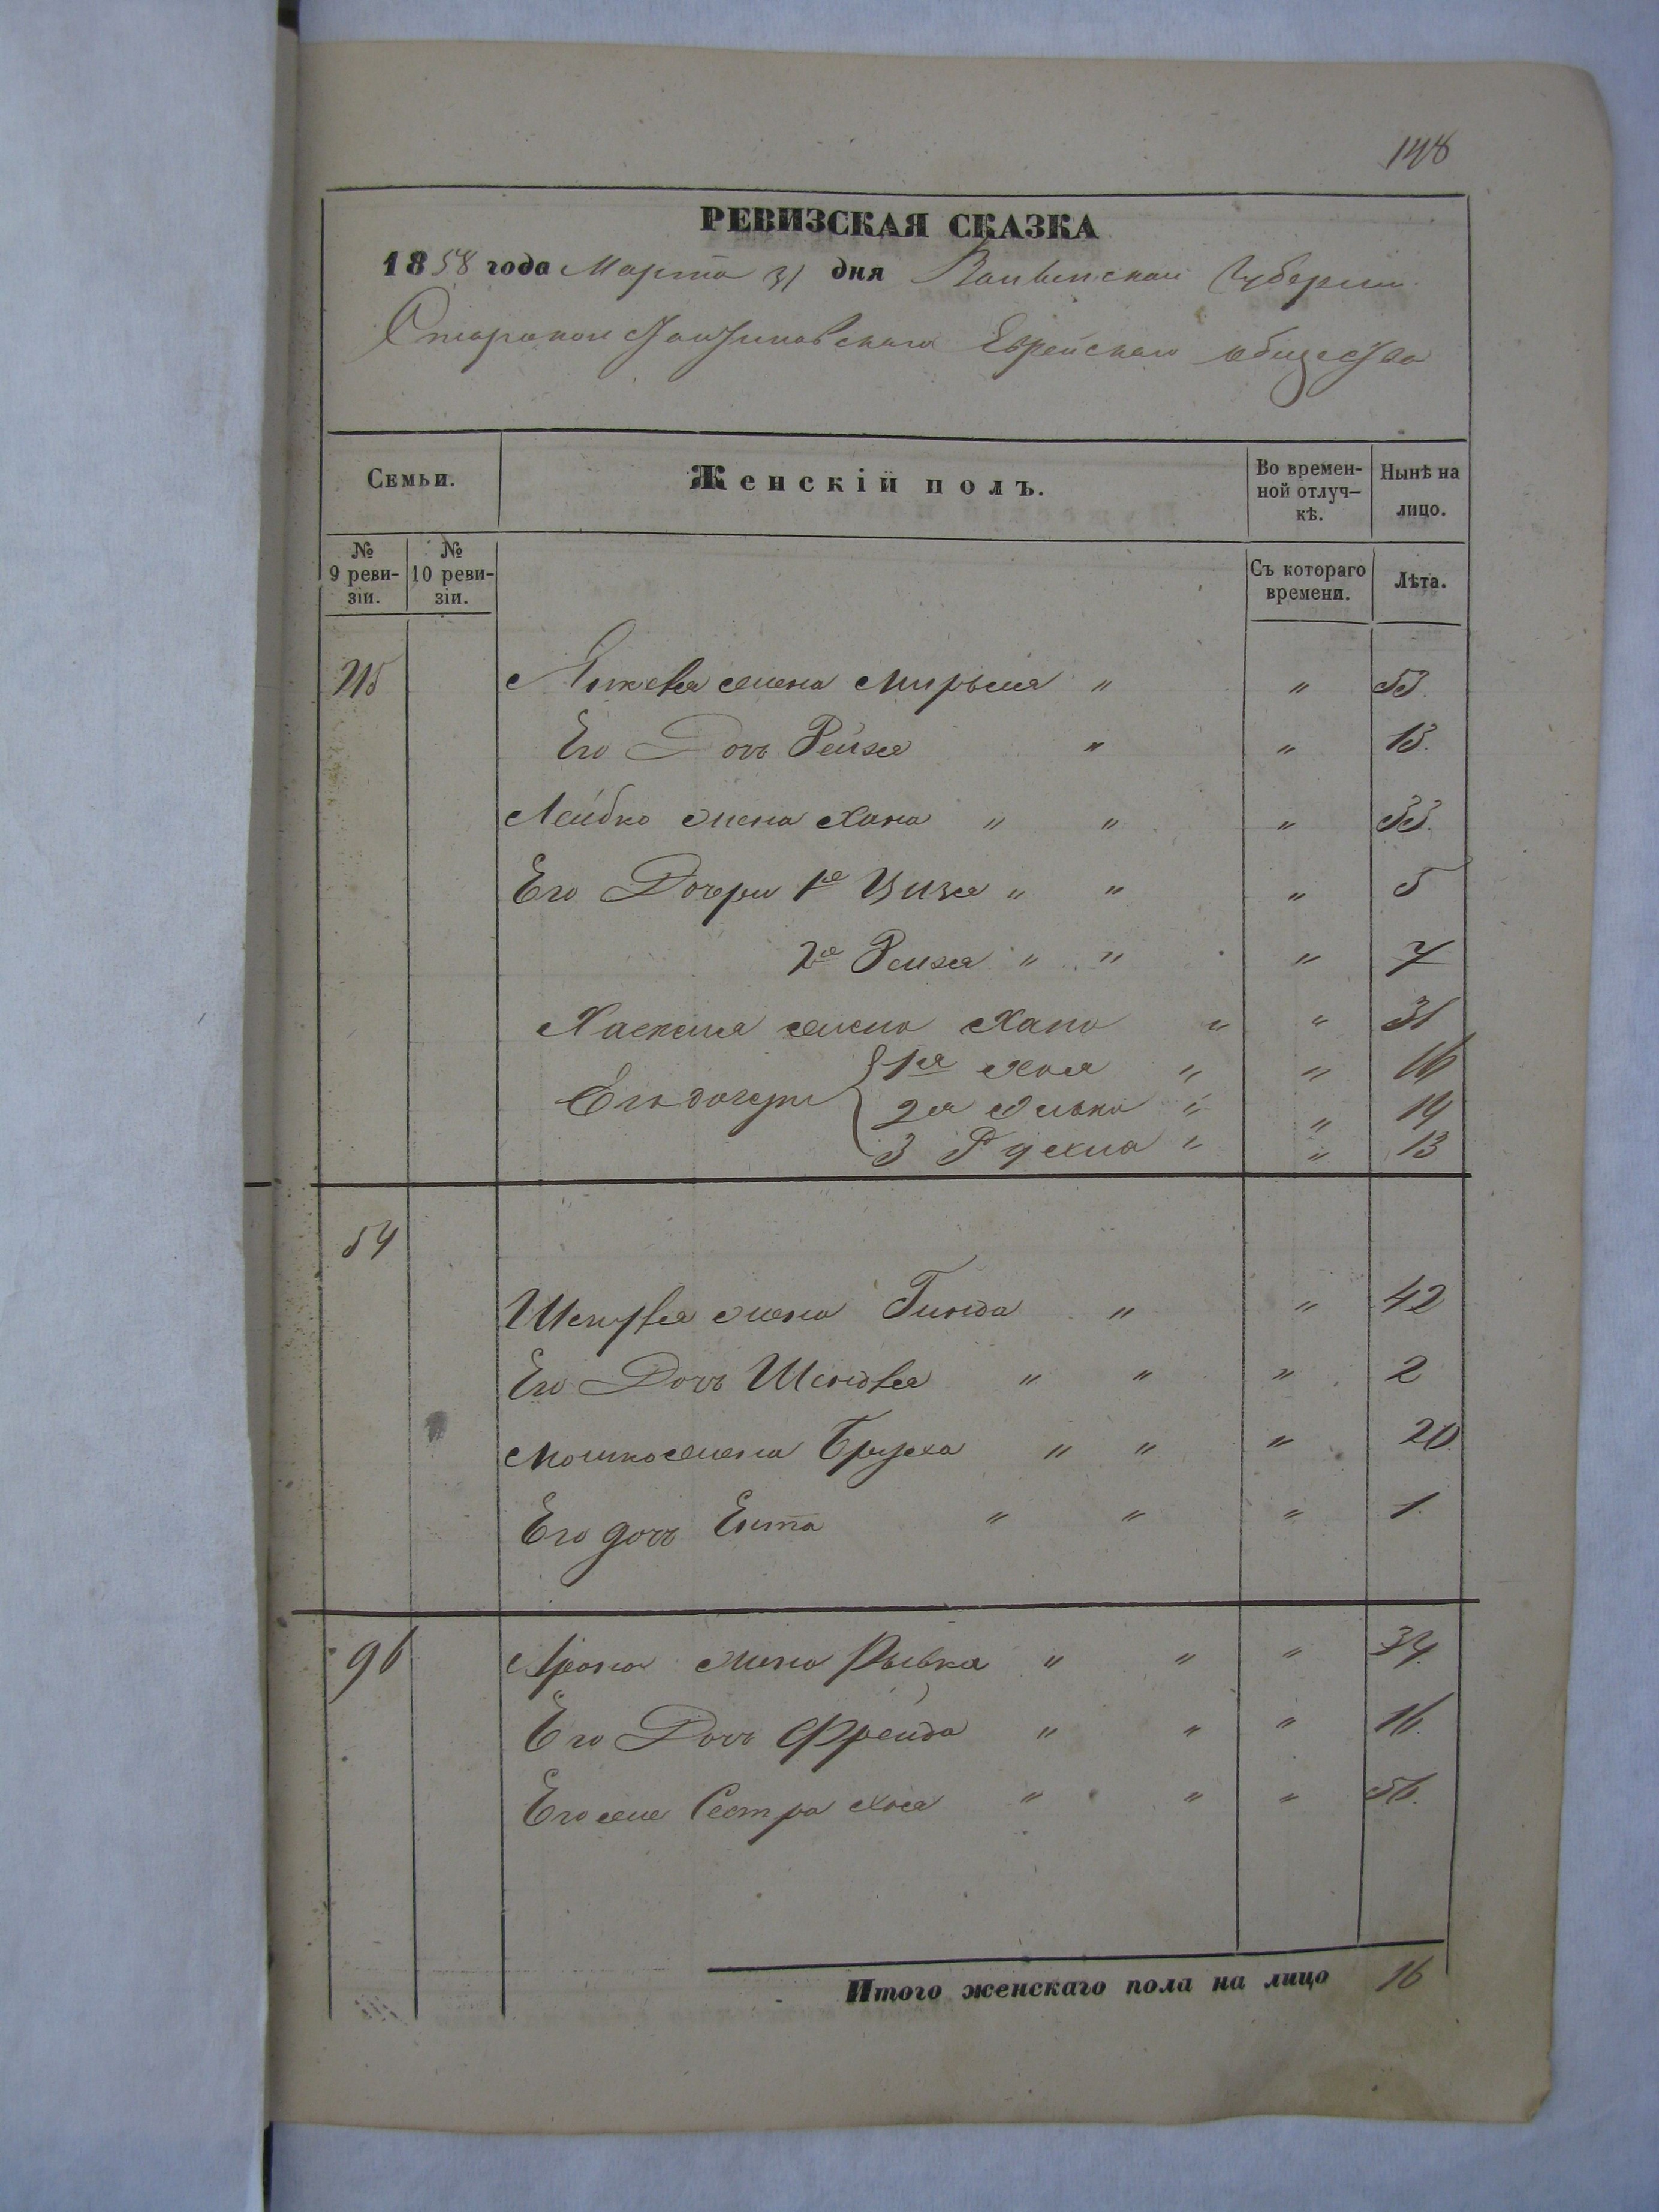 148
РЕВИЗСКАЯ СКАЗКА
1858 года Марта 31 дня Волынской Губернии
Староконстантиновскаго Еврейскаго общества
Семьи. Женскій полъ. Во временной отлучкѣ. Нынѣ на лицо.
№ 9 ревизіи. № 10 ревизіи. Съ котораго времени. Лѣта.
215 жена Мирьмя " " 53.
Его Дочь Рейзя " " 13.
Лейбко жена Хана " " " 33.
Его Дочери 1я Цизя " " " 5
2я Рейзя " " " 7
Хаскеля жена Хана " " 31
Его дочери 1я Хая " " 16
2я " " 14
3 Рухля " " 13
54
жена Гинда " " 42
Его Дочь Шейндля " " " 2
Мошко жена Бруха " " " 20.
Его дочь Ента " " " 1.
96 Арона жена Рывка " " " 34.
Его Дочь Фрейда " " " 16.
Его же Сестра Хая " " " 56.
Итого женскаго пола на лицо 16